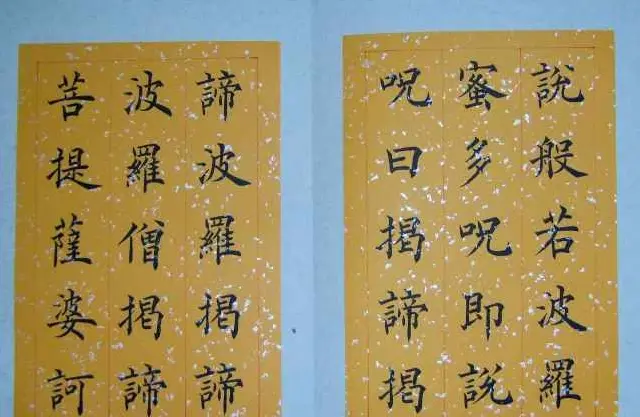 說般若波羅
蜜多呪即說
呪曰揭諦揭
諦波羅揭諦
波羅僧揭諦
菩提薩婆訶